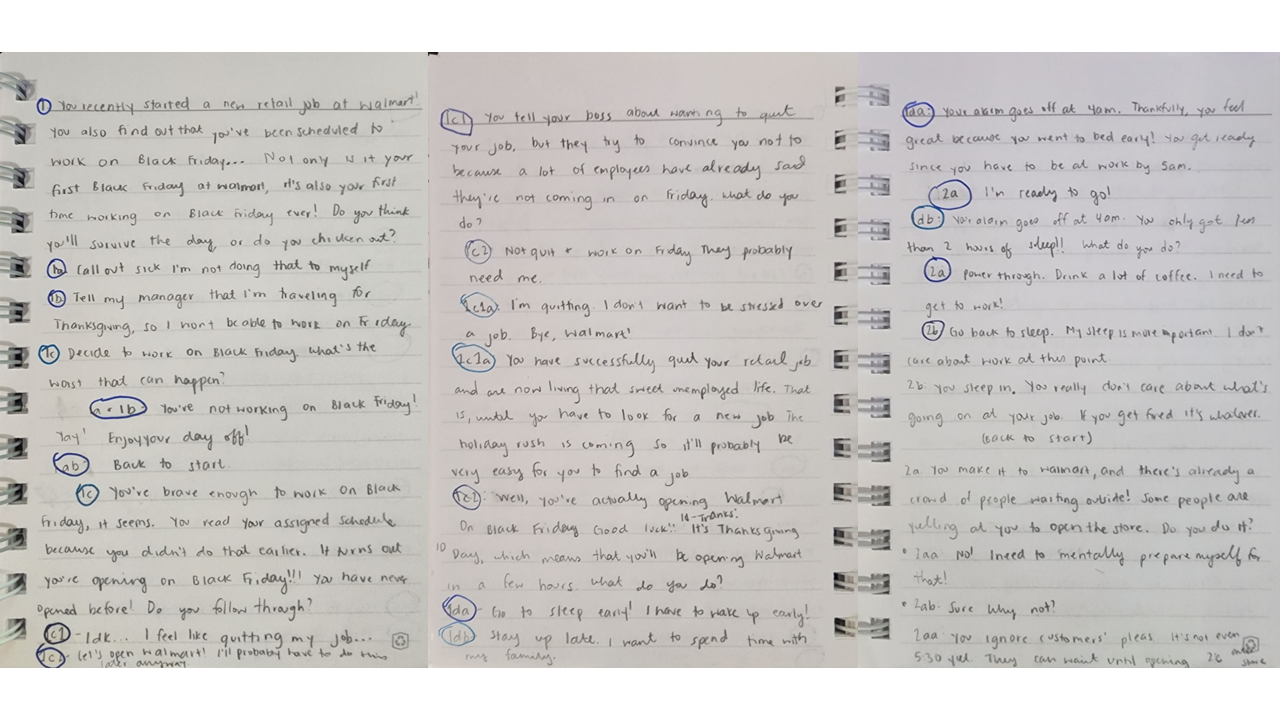 1 You recently started a new retail job at Walmart!
You also find out that you've been scheduled to
work on Black Friday... Not only is it your
first Black Friday at Walmart, it's also your first
time working on Black Friday ever! Do you think
you'll survive the day, or do you chicken out?
1a Call out sick I'm not doing that to myself
1b Tell my manager that I'm traveling for
Thanksgiving, so I won't be able to work on Friday
1c Decide to work on Black Friday. What's the
worst that can happen?
a + 1b: You're not working on Black Friday!
Yay! Enjoy your day off!
ab: Back to start.
1c You've brave enough to work on Black
Friday, it seems. You read your assigned schedule
because you didn't do that earlier. It turns out
you're opening on Black Friday!!! You have never
opened before! Do you follow through?
- Idk... I feel like quitting my job...
- Let's open Walmart! I'll probably have to do this
later anyway.
1c1 You tell your boss about wanting to quit
your job, but they try to convince you not to
because a lot of employees have already said
they're not coming in on Friday. What do you
do?
1c2 Not quit + work on Friday They probably
need me.
1c1a. I'm quitting. I don't want to be stressed over
a job. Bye, Walmart!
1c1a You have successfully quit your retail job
and are now living that sweet unemployed life. That
is, until you have to look for a new job The
holiday rush is coming so it'll probably be
very easy for you to find a job
1c2: Well, you're actually opening Walmart
On Black Friday Good luck!! It's Thanksgiving
1d - Thanks:
1D Day, which means that you'll be opening Walmart
in a few hours. What do you do?
1da - Go to sleep early! I have to wake up early!
1db Stay up late. I want to spend time with
my family.
1da: Your alarm goes off at 4am. Thankfully, you feel
great because you went to bed early! You get ready
since you have to be at work by 5am.
2a I'm ready to go!
1db: Your alarm goes off at 4am. You only got less
than 2 hours of sleep!! What do you do?
2a Power through. Drink a lot of coffee. I need to
get to work!
2b Go back to sleep. My sleep is more important. I don't
care about work at this point.
2b: You sleep in. You really don't care about what's
going on at your job. If you get fired it's whatever.
(back to start)
2a You make it to Walmart, and there's already a
crowd of people waiting outside! Some people are
yelling at you to open the store. Do you do it?
• 2aa No! I need to mentally prepare myself for
that!
• 2ab: Sure Why not?
2aa - You ignore customers' pleas. It's not even
5:30 yet. They can wait until opening
store